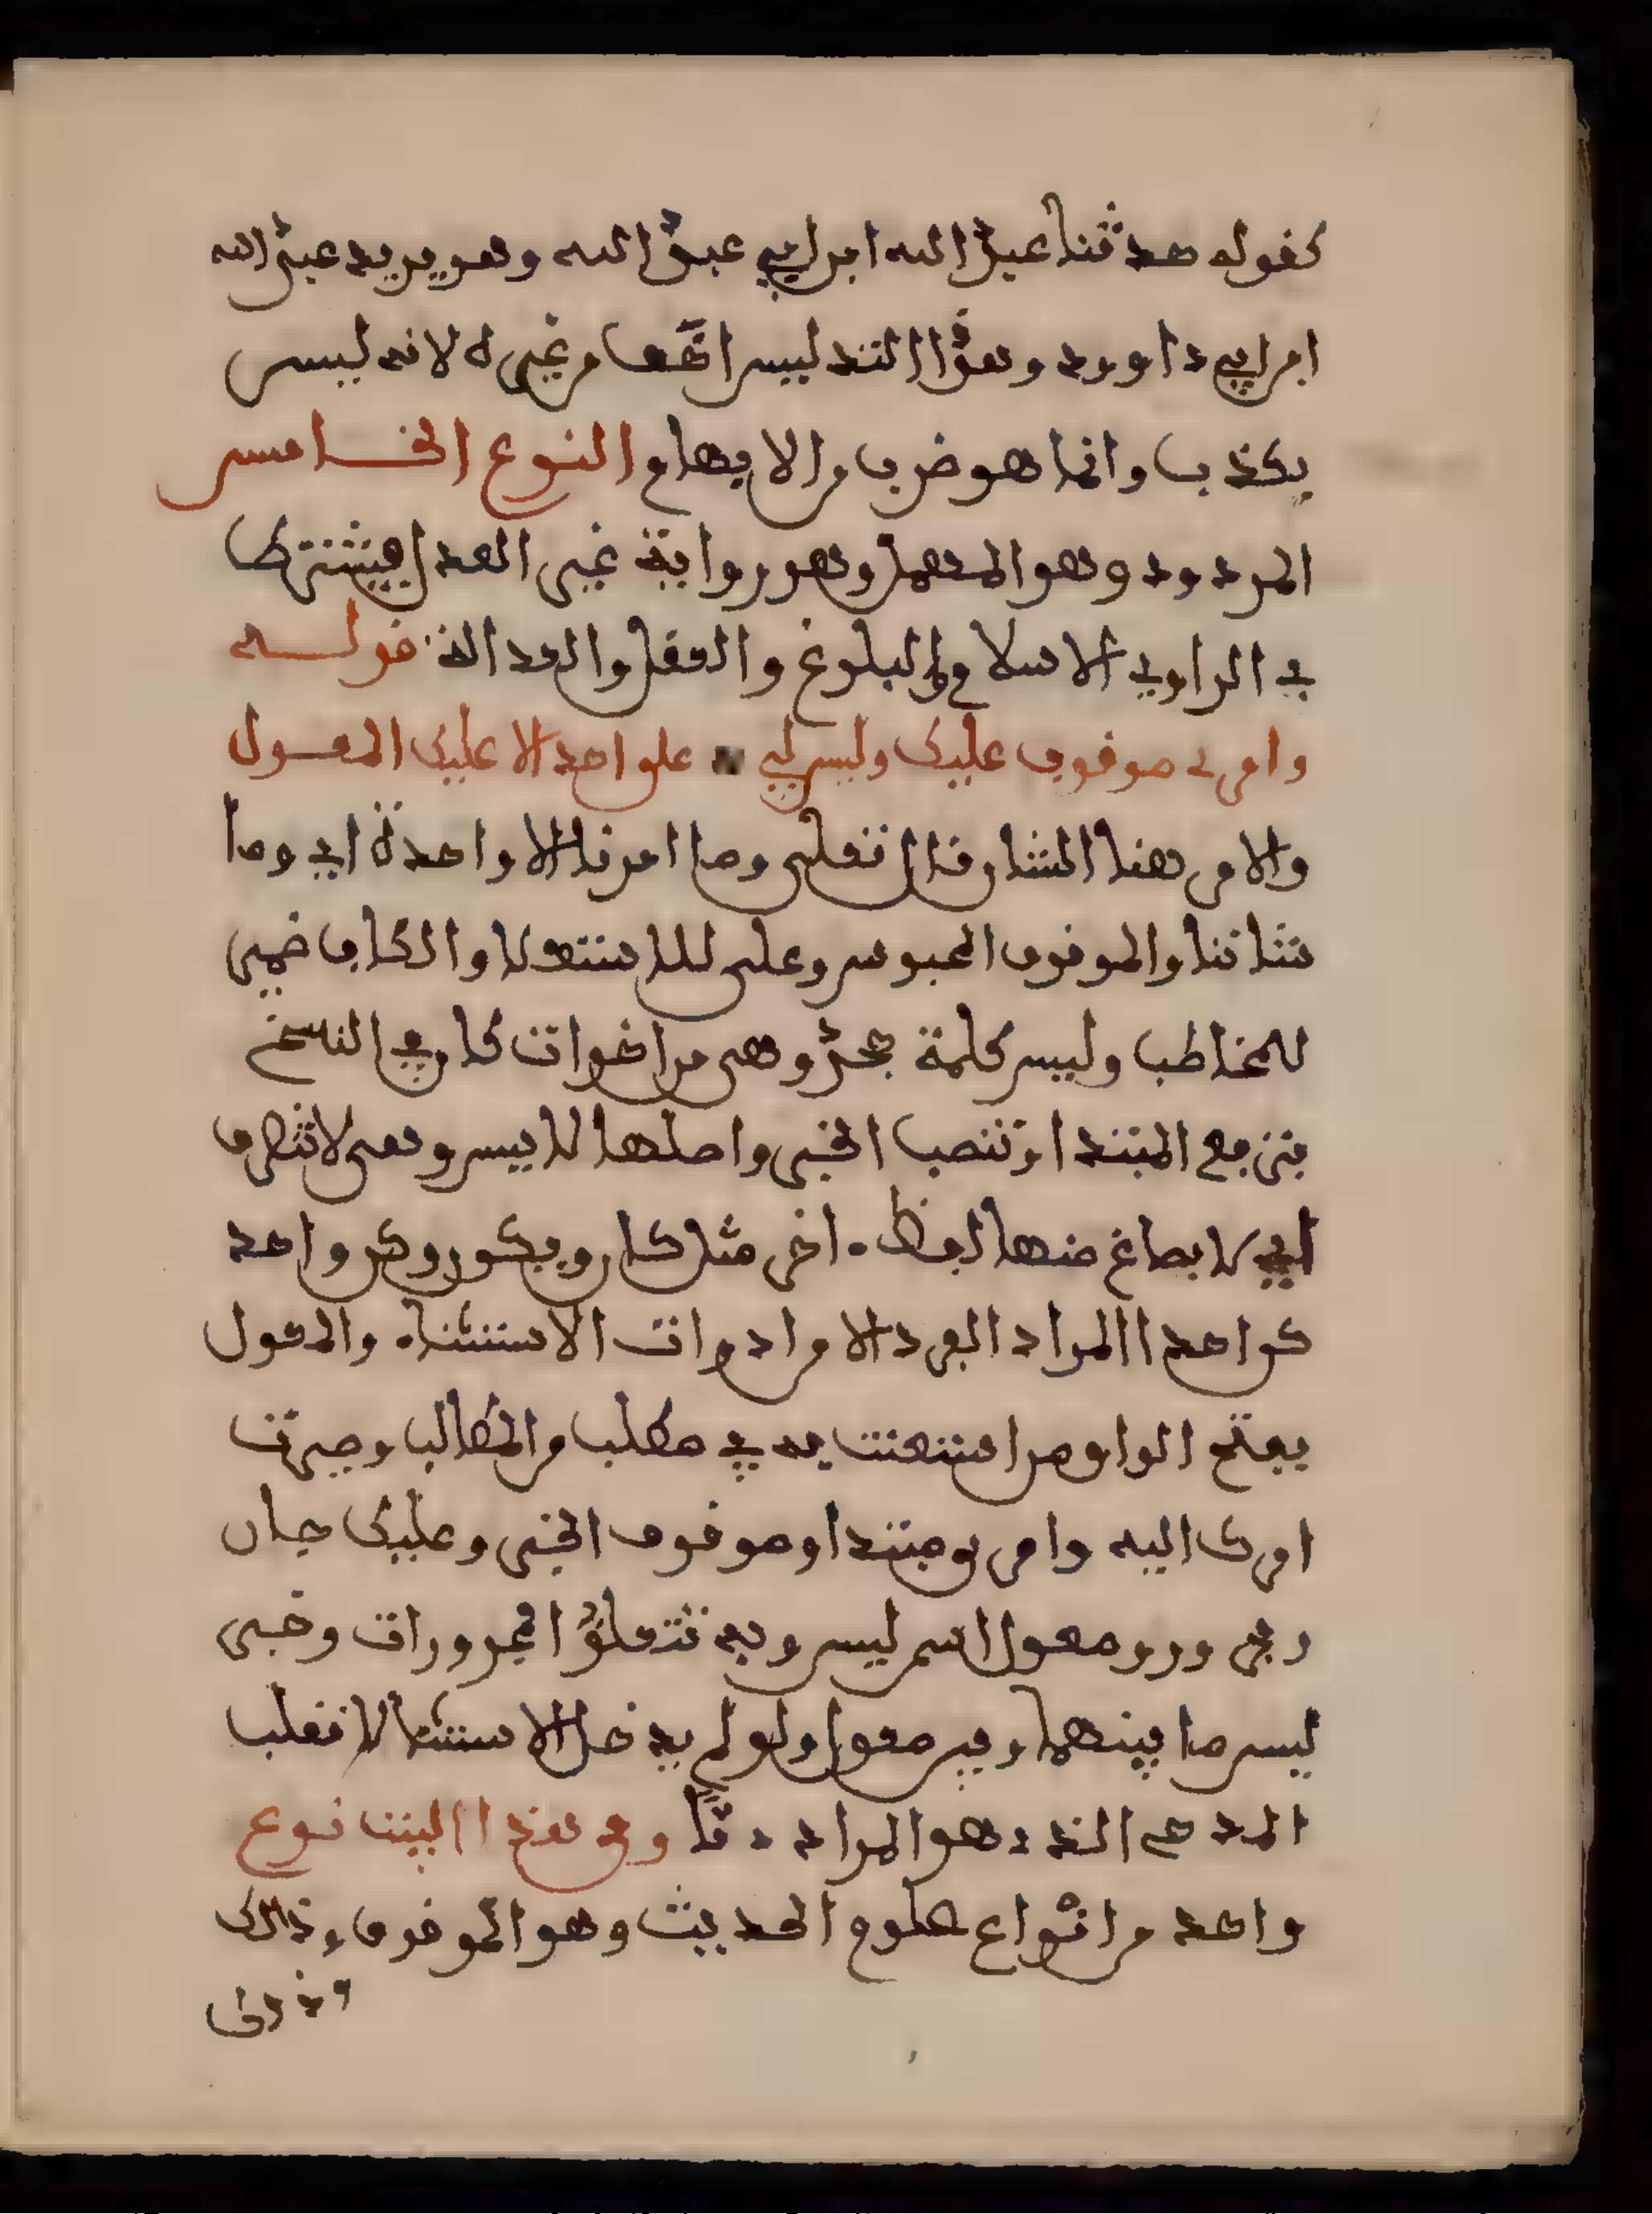 كقوله حدثنا عبد الله ابن ابي عبد الله وهو يريد عبد الله
ابن ابي داوود وهذا التدليس اخف من غيره لانه ليس
بكذب وانما هو ضرب من الايهام النوع الخامس
المردود وهو المهمل وهو رواية غير العدل فيشترط
في الراوي الاسلام والبلوغ والعقل والعدالة قوله
وامري موقوف عليك وليس لي على احد الا عليك المعول
والامر هنا الشان قال تعلى وما امرنا الا واحدة اي وما
شاننا والموقوف المحبوس وعلى للاستعلا والكاف ضمير
للمخاطب وليس كلمة جحد وهي من اخوات كان في النسخ
فترفع المبتدا وتنصب الخبر واصلها لا ييس وهي لا تتصرف
اي لا يصاغ منها لفظ اخر مثل كان ويكون وكن واحد
كواحد المراد الفرد الا من ادوات الاستثناء والمعول
بفتح الواو من استعنت به في مطلب من المطالب وصرفت
امرك اليه وامري مبتدا وموقوف الخبر وعليك جار
ومجرور ومعول اسم ليس وبه تتعلق المجرورات وخبر
ليس ما بينهما وبين معول ولو لم يدخل الاستثنا لانقلب
المدح الذي هو المراد ذما وفي هذا البيت نوع
واحد من انواع علوم الحديث وهو الموقوف وذلك